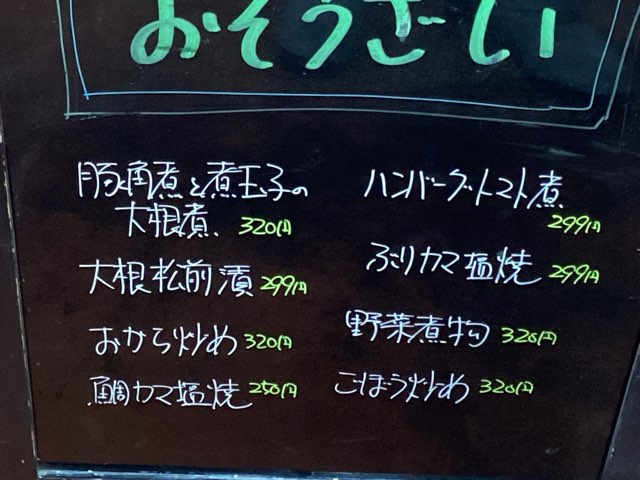 おそうざい
豚角煮と煮玉子の
大根煮、 320円
大根松前漬 299円
おから炒め 320円
鯛カマ塩焼 250円
ハンバーグトマト煮
299円
ぶりカマ塩焼 299円
野菜煮物 320円
ごぼう炒め 320円